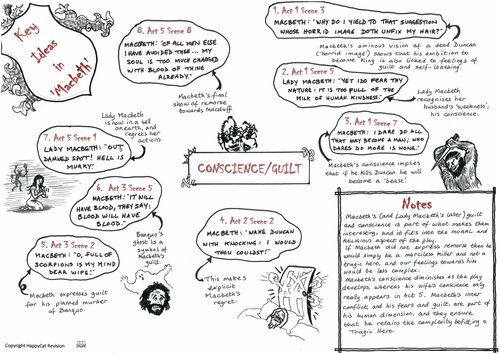 Key
Ideas
in
'Macbeth'
1. Act 1 Scene 3
MACBETH: "WHY DO I YIELD TO THAT SUGGESTION
WHOSE HORRID IMAGE DOTH UNFIX MY HAIR?"
Macbeth's ominous vision of a dead Duncan
('horrid image') shows that his ambition to
become King is also linked to feelings of
guilt and self-loathing.
2. Act 1 Scene 5
LADY MACBETH: "YET I DO FEAR THY
NATURE: IT IS TOO FULL OF THE
MILK OF HUMAN KINDNESS."
Lady Macbeth
recognises her
husband's 'weakness';
his conscience.
3. Act 1 Scene 7
MACBETH: I DARE DO ALL
THAT MAY BECOME A MAN; WHO
DARES DO MORE IS NONE."
Macbeth's conscience implies that
if he kills Duncan he will
become a 'beast'.
CONSCIENCE/GUILT
4. Act 2 Scene 2
MACBETH: "WAKE DUNCAN
WITH KNOCKING: I WOULD
THOU COULDST!"
This makes
explicit
Macbeth's
regret.
5. Act 3 Scene 2
MACBETH: "O, FULL OF
SCORPIONS IS MY MIND
DEAR WIFE!"
Macbeth expresses guilt
for his planned murder
of Banquo.
6. Act 3 Scene 5
MACBETH: "IT WILL
HAVE BLOOD, THEY SAY:
BLOOD WILL HAVE
BLOOD."
Banquo's
ghost is a
symbol of
Macbeth's
guilt.
7. Act 5 Scene 1
LADY MACBETH: "OUT,
DAMNED SPOT! HELL IS
MURKY."
Lady Macbeth
is now in a hell
on earth, and
regrets her
actions.
8. Act 5 Scene 8
MACBETH: "OF ALL MEN ELSE
I HAVE AVOIDED THEE... MY
SOUL IS TOO MUCH CHARGED
WITH BLOOD OF THINE
ALREADY."
Macbeth's final
show of remorse
towards Macduff
Notes
Macbeth's (and Lady Macbeth's later) guilt
and conscience is part of what makes them
interesting; and it fits into the moral and
religious aspect of the play.
If Macbeth did not express remorse then he
would simply be a merciless killer and not a
tragic hero, and our feelings towards him
would be less complex.
Macbeth's conscience diminishes as the play
develops, whereas his wife's conscience only
really appears in Act 5. Macbeth's inner
conflict, and his fears and guilt, are part of
his human dimension, and they ensure
that he retains the complexity befitting a
Tragic Hero.
Copyright HappyCat Revision